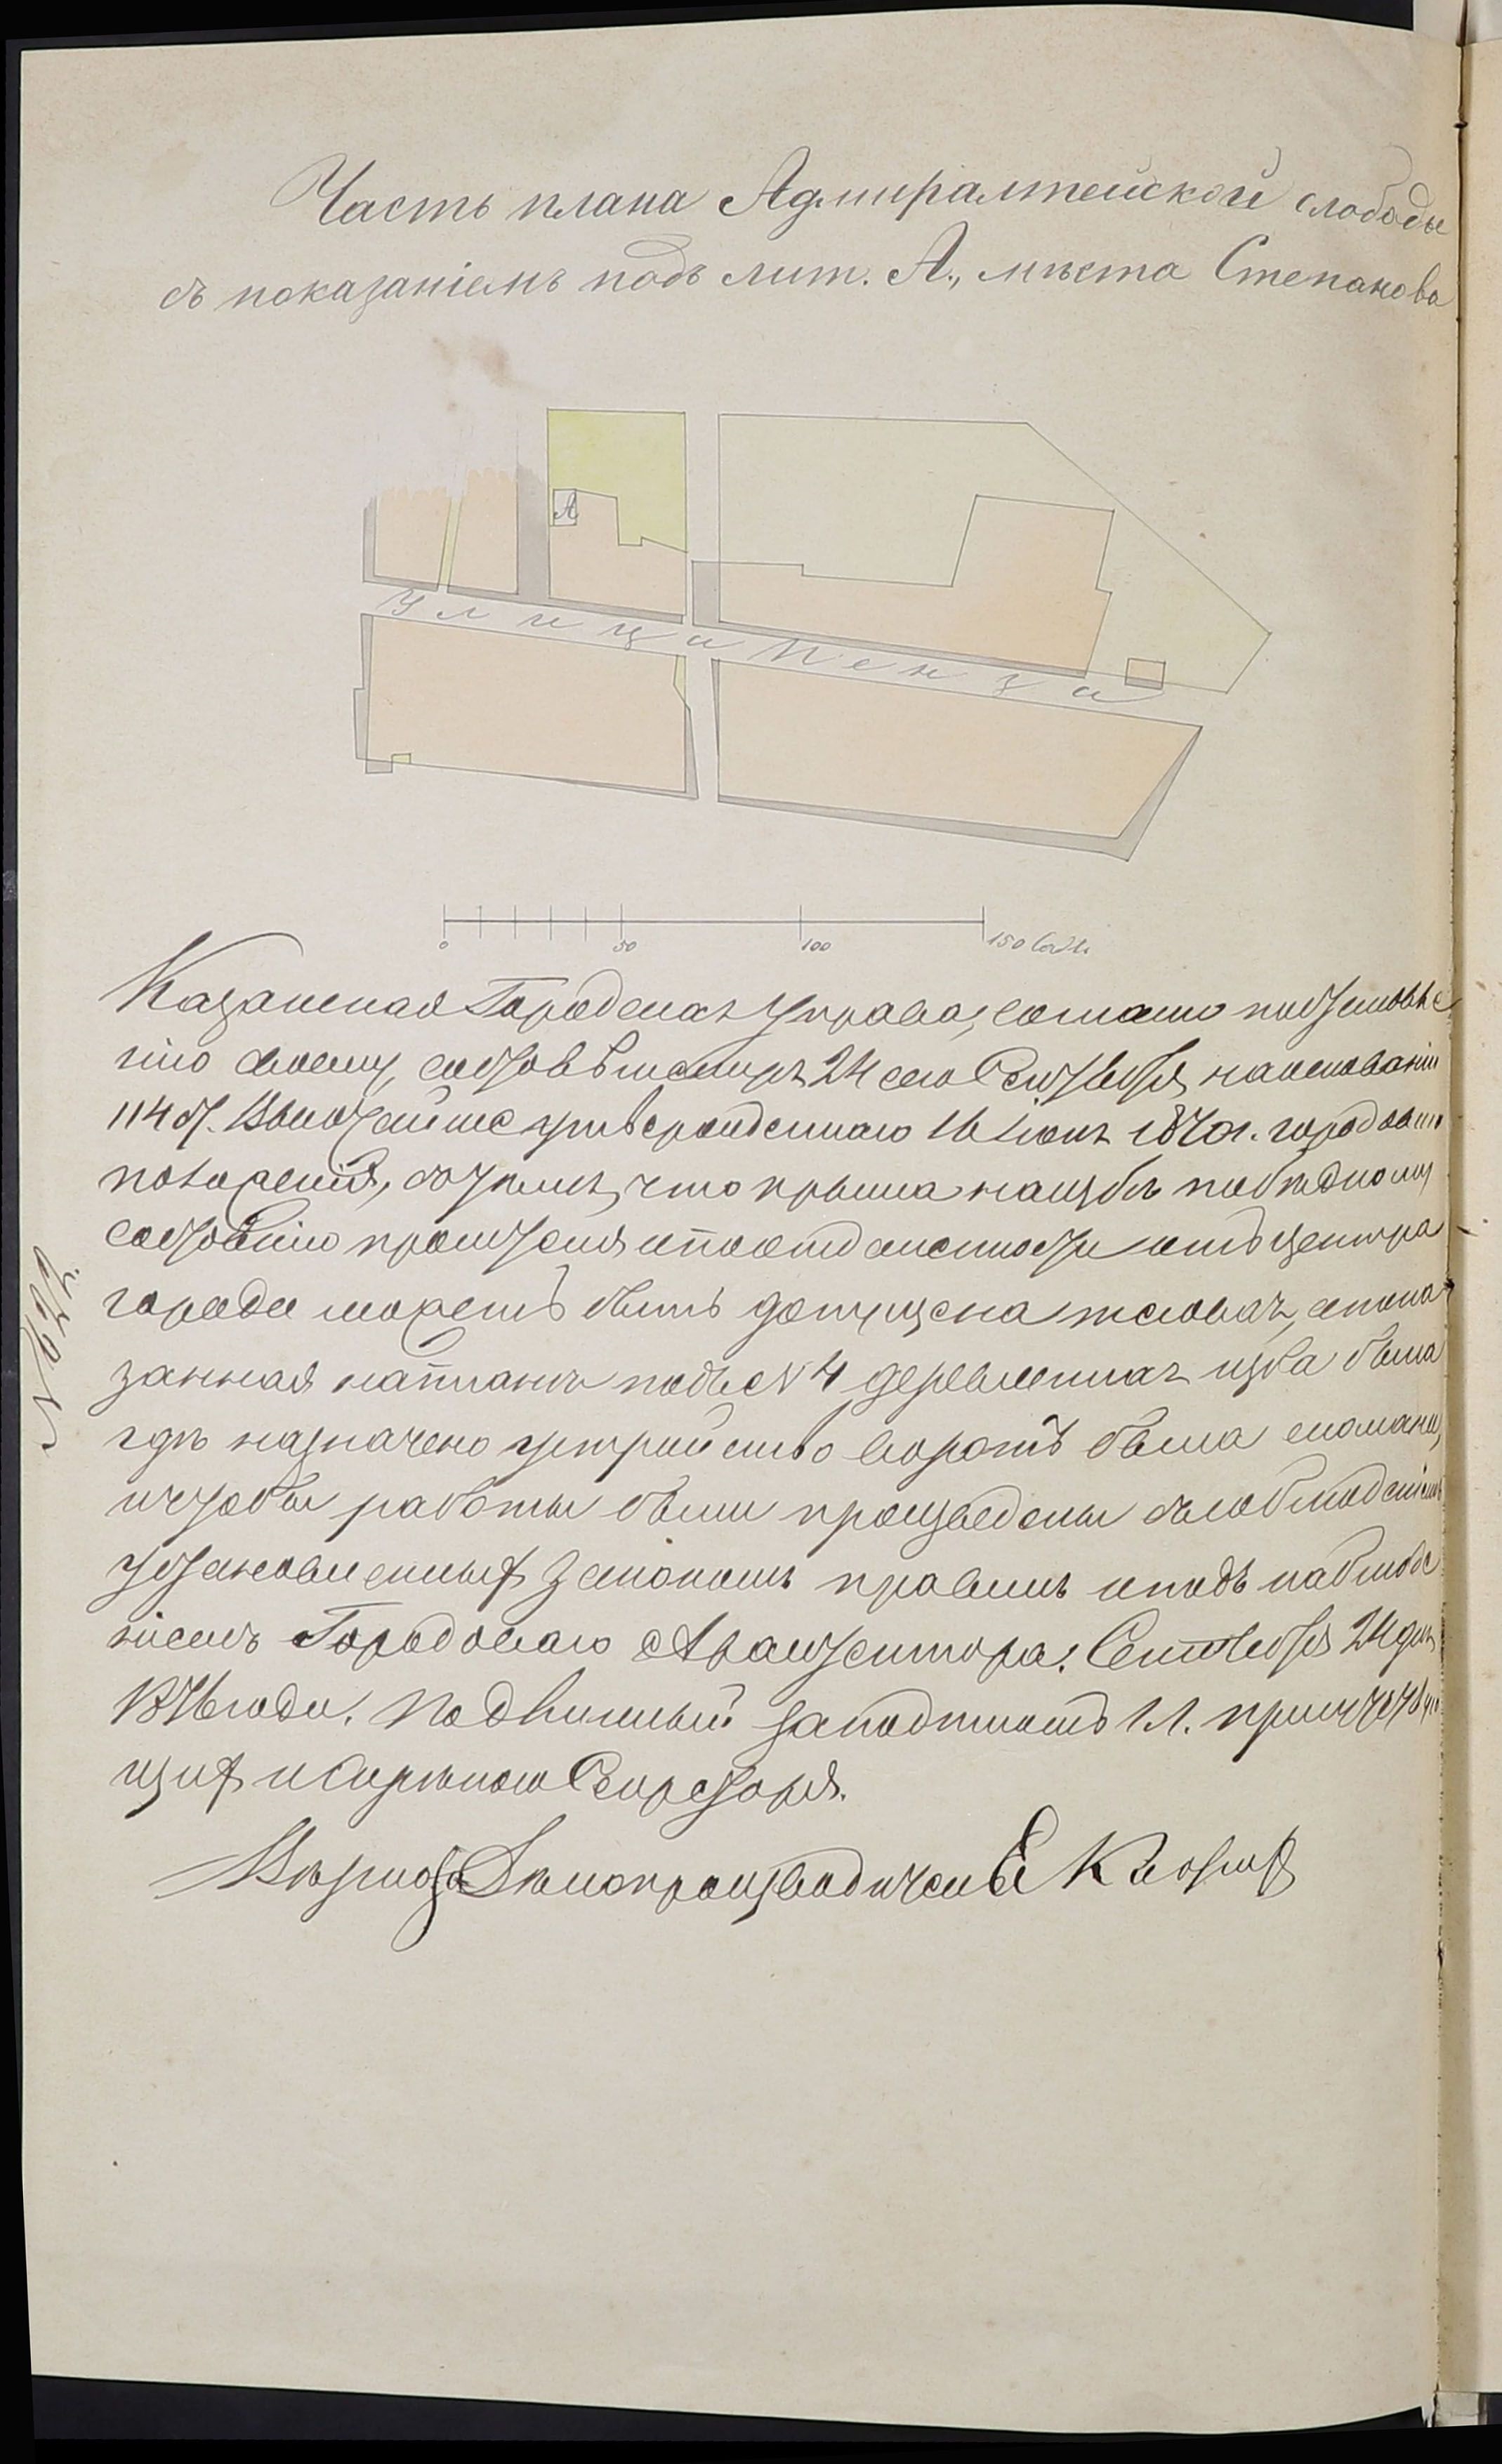 Часть плана Адмиралтейской слободы
съ показаніемъ подъ лит. А., мѣста Степанова
А
Улица Пенза
0 50 100 150 саж.
Казанская Городская Управа, согласно постановле
нію своему, состоявшемуся 24 сего Сентября, на основаніи
114 ст. Высочайше утвержденнаго 16 Іюня 1870 г. городоваго
положенія, съ тѣмъ, что крыша на избѣ по бѣдному
состоянію просителя и по отдаленности отъ центра
города можетъ быть допущена тесовая, а пока
занная на планѣ подъ № 4 деревянная изба была
гдѣ назначено устройство воротъ была сломана,
и чтобы работы были произведены съ соблюденіемъ
установленныхъ закономъ правилъ и подъ наблюде
ніемъ Городоваго Архитектора. Сентября 24 дня
1876 года. Подлинный за подписью
и Секретаря.
Вѣрно: Дѣлопроизводитель Е.
№ 622.